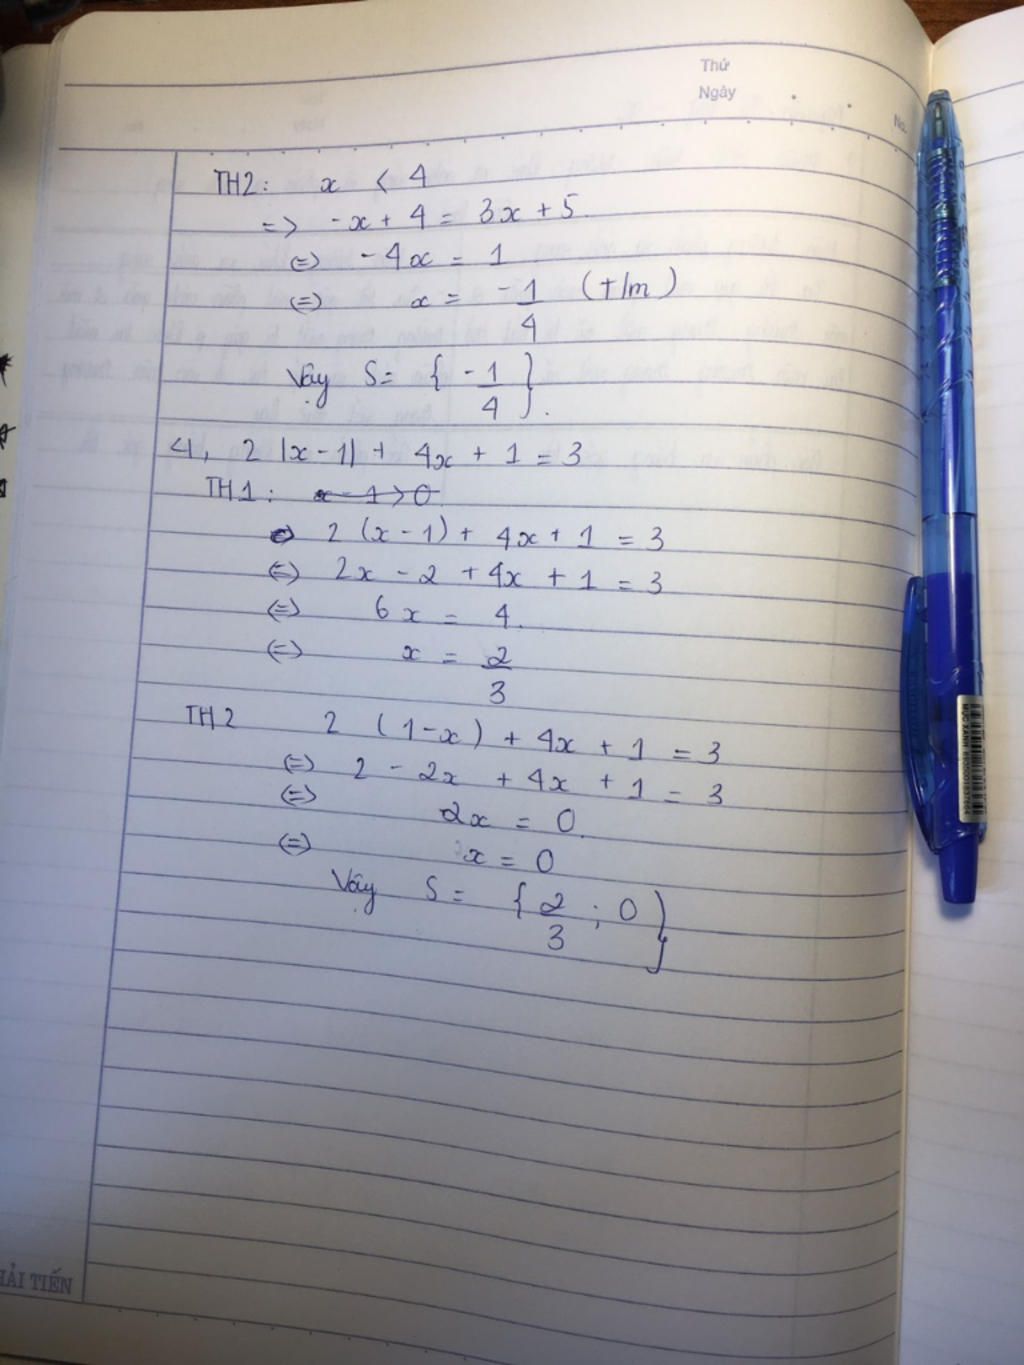 Thứ
Ngày
No.
TH2: x < 4
=> -x + 4 = 3x + 5.
(=) -4x = 1
(=) x = -1/4 (t/m)
Vậy S = { -1/4 }.
4, 2 |x - 1| + 4x + 1 = 3
TH1: x - 1 > 0
=> 2 (x - 1) + 4x + 1 = 3
(=) 2x - 2 + 4x + 1 = 3
(=) 6x = 4.
(=) x = 2/3
TH2 2 (1 - x) + 4x + 1 = 3
(=) 2 - 2x + 4x + 1 = 3
(=) 2x = 0.
(=) x = 0
Vậy S = { 2/3 ; 0 }
HẢI TIẾN
MỰC XANH